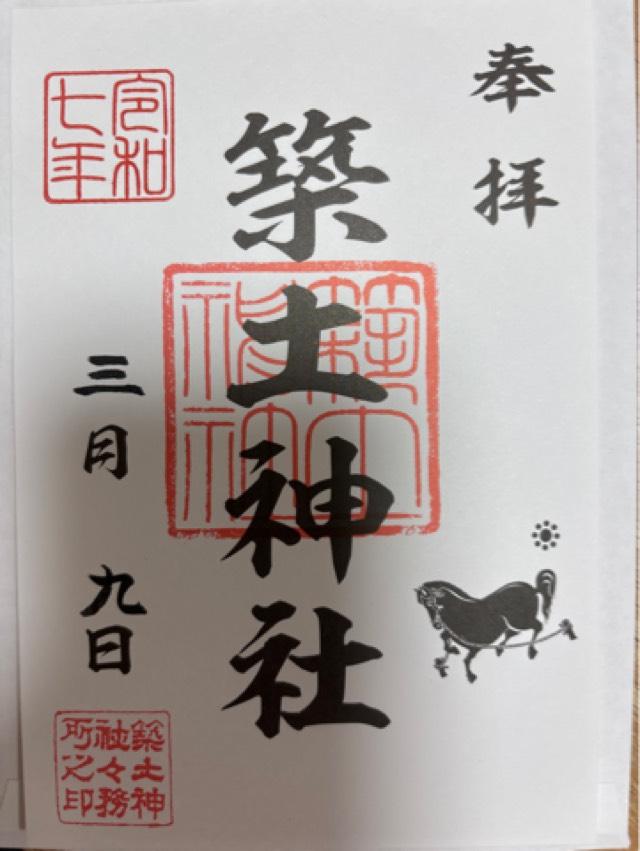 奉拝
築土神社
築土神社
令和
七年
三月 九日
築土神
社々務
所之印